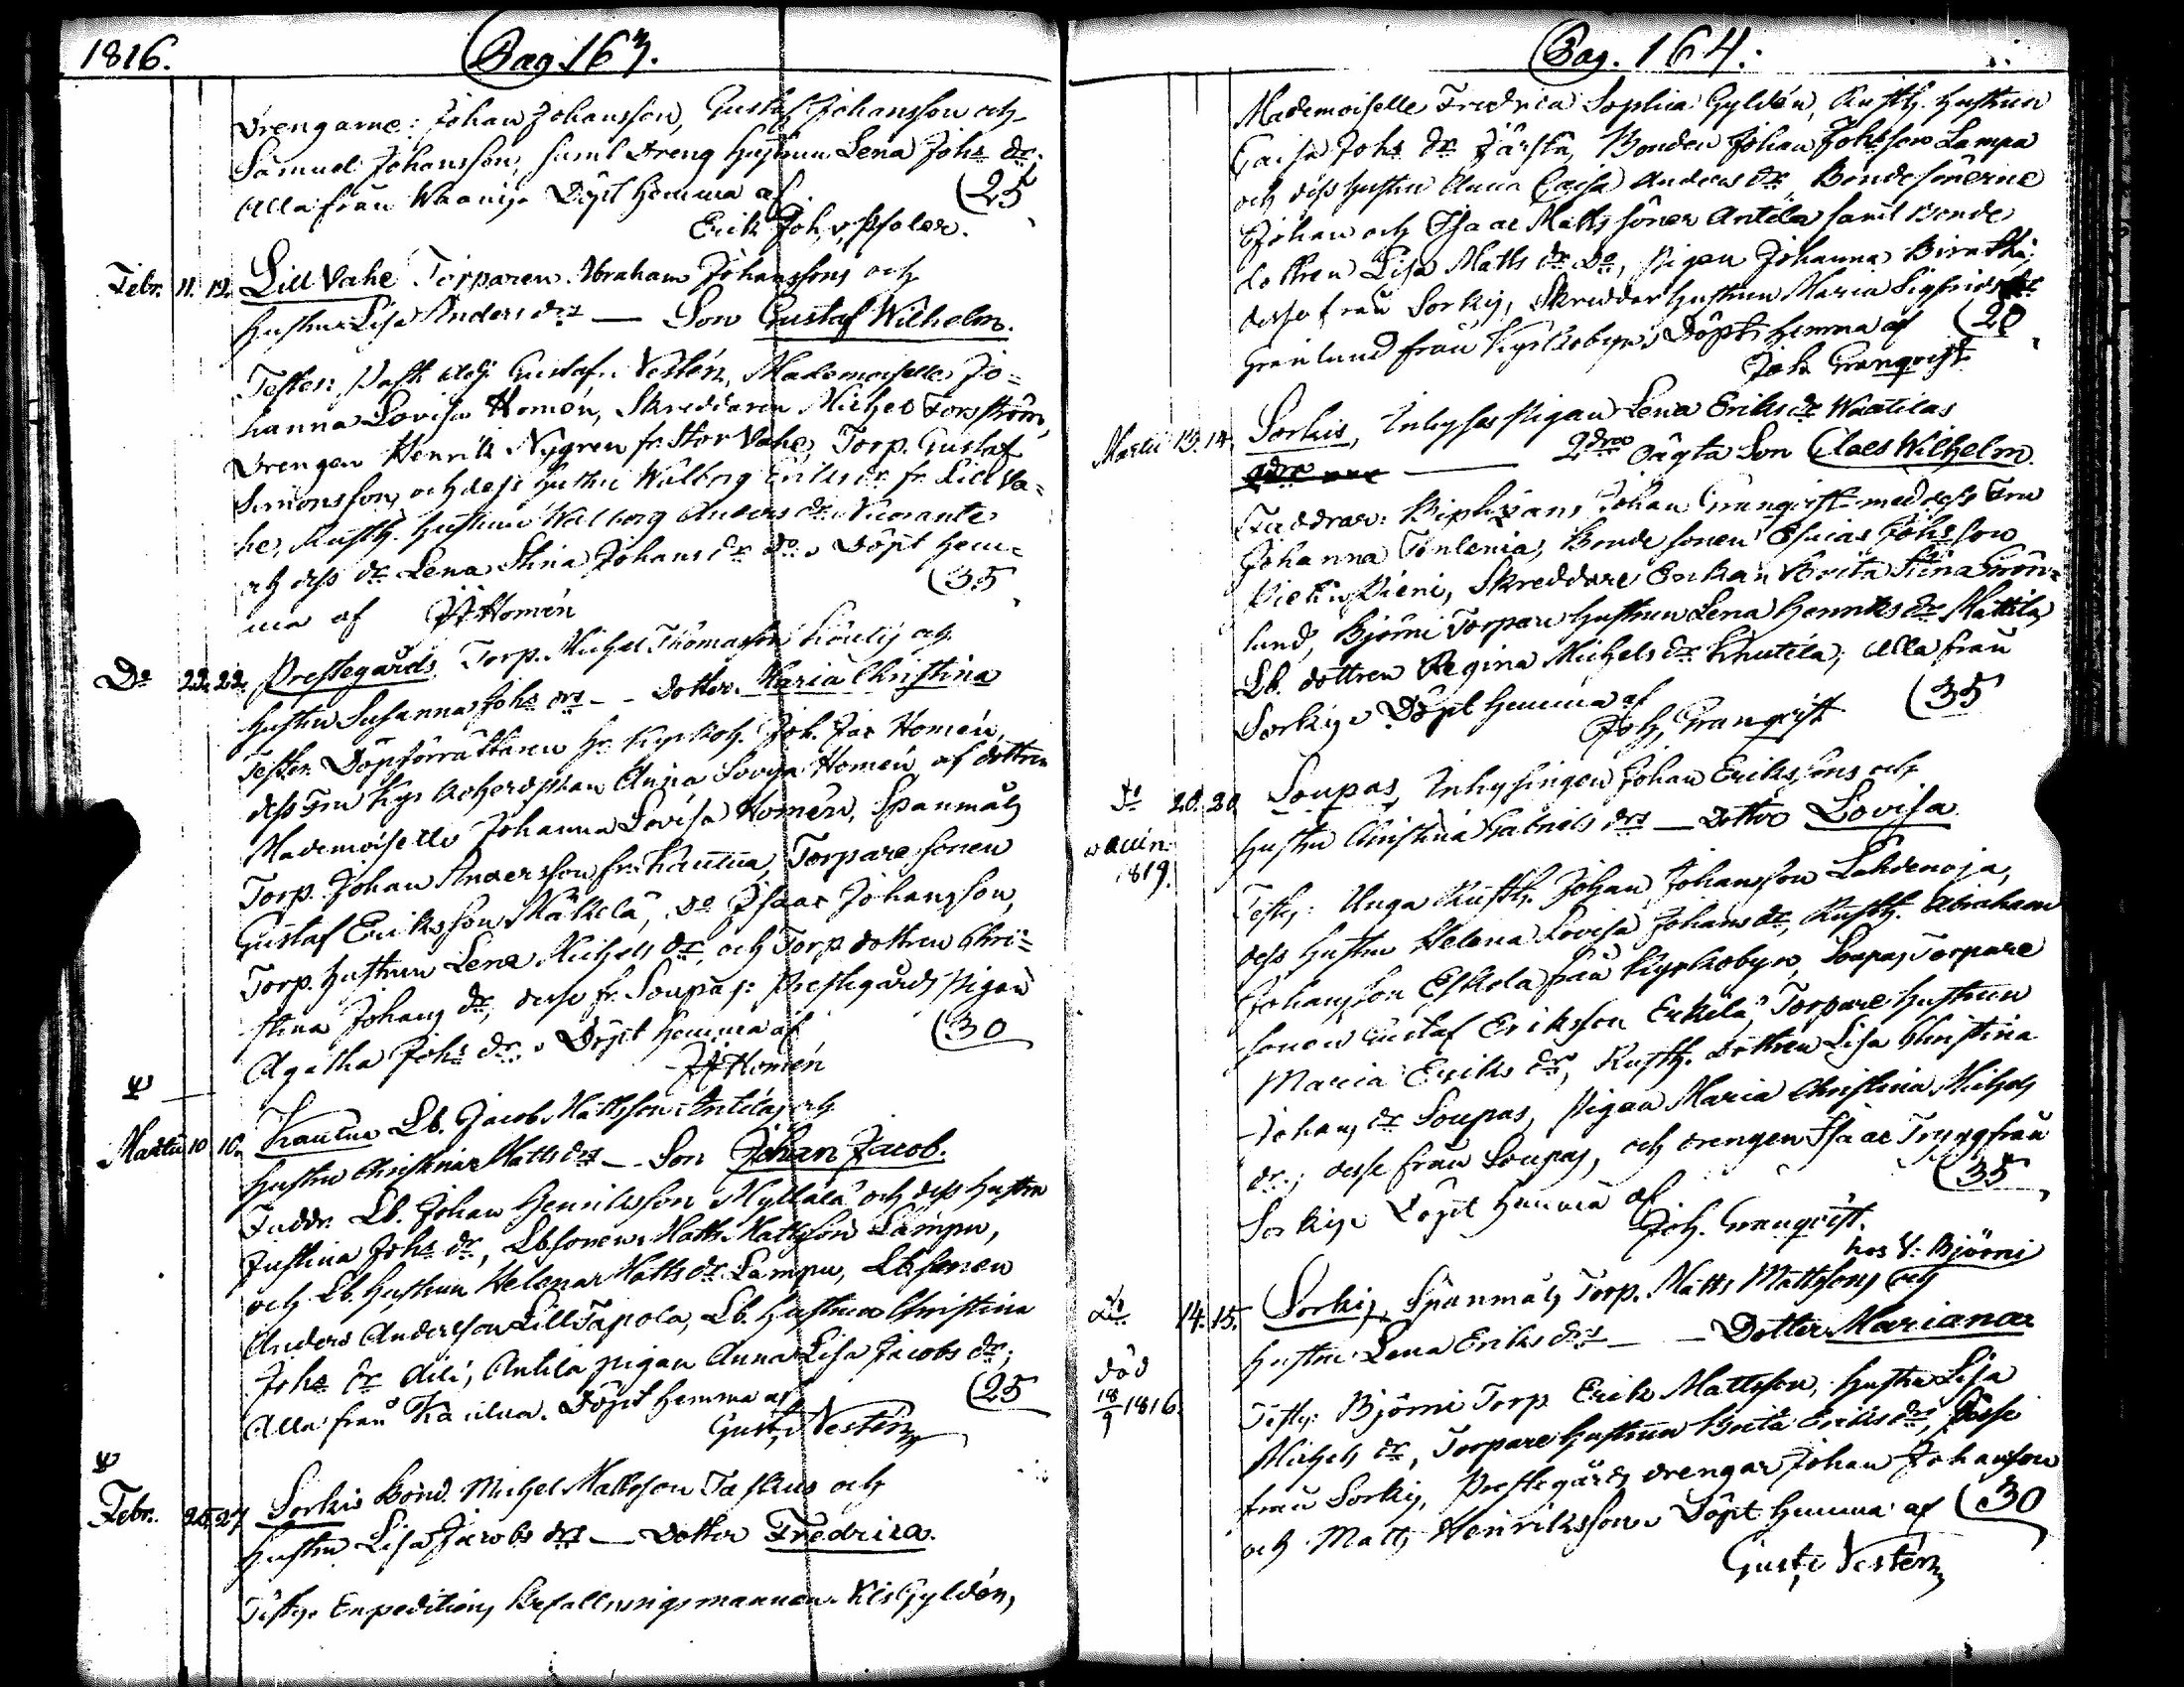 1816. Pag. 163.
Drengarne: Johan Johansson, Gustaf Johansson och
Samuel Johansson, samt Dreng hustrun Lena Johs dr.
Alla från Waanij. Döpt hemma af (25
Erik Joh.
Febr. 11. 12. Lill Vahe Torparen Abraham Johanssons och
hustru Lisa Anders drs — Son Gustaf Wilhelm.
Testes: Past. Adj. Gustaf Nestén, Mademoiselle Jo=
hanna Lovisa Homén, Skreddaren Michel Forsström,
Drengen Henrik Nygren fr. Stor Vahe, Torp. Gustaf
Simonsson, och dess hustru Walborg Eriks dr fr. Lill Va=
he, Rusth. hustrun Walborg Anders dr
och dess dr Lena Stina Johans dr do. Döpt hem=
ma af JJ Homén (35
Do 22. 22. Prestegårds Torp. Michel Thomasson och
hustru Susanna Johs drs — Dotter Maria Christina
Testes. Döpförrättaren Hr Kyrkoh. Joh. Jac Homén,
dess Fru Kyrkoherdskan Anna Lovisa Homén af dottren
Mademoiselle Johanna Lovisa Homén, Spanmåls
Torp. Johan Andersson fr. Kautua, Torpare sonen
Gustaf Eriksson Mäkelä, Do Isaac Johansson,
Torp. hustrun Lena Michels dr, och Torp dottren Chri=
stina Johans dr, desse fr. Soupas: Prestegårds Pigan
Agatha Johs dr. Döpt hemma af (30
JJ Homén
Martii 10 10. Kautua Lb. Jacob Mattsson Antilas och
hustru Christina Matts drs — Son Johan Jacob.
Faddr. Lb. Johan Henriksson Myllälä och dess hustru
Justina Johs dr, Lbsonen Matts Mattsson Lampu,
och Lb. hustrun Helena Matts dr Lampu, Lbsonen
Anders Andersson Lill Tapola, Lb. hustrun Christina
Johs dr Äili, Antila pigan Anna Lisa Jacobs dr;
Alla från Kautua. Döpt hemma af (25
Gust. Nestén
Febr. 25. 27 Sorkis Bond. Michel Mattsson Taskus och
hustru Lisa Jacobs drs — Dotter Fredrica.
Testes. Expeditions Befallningsmannen Gyldén,
Pag. 164.
Mademoiselle Fredrica Sophia Gyldén, Rusth. hustrun
Caisa Johs dr Järstä, Bonden Johan Johsson Lampa
och dess hustru Anna Caisa Anders dr Bonde sönerne
Johan och Isaac Matts söner Antila samt Bonde
dottren Lisa Matts dr Do, Pigan Johanna
desse från Sorkis, Skreddar hustrun Maria Sigfrids dr
Grönlund från Kyrkobyn. Döpt hemma af (20
Joh Granqvist
Martii 13. 14. Sorkis, Inhyses Pigan Lena Eriks dr Waatilas
2dra Oägta Son Claes Wilhelm.
Faddrar: Johan Granqvist med dess Fru
Johanna Bonde sonen Esaias Johsson
Pieni, Skreddare Enkan Brita Stina Grön=
lund, Björni Torpare hustrun Lena Henriks dr Mattila
Lb. dottren Regina Michels dr Knutila; Alla från
Sorkis. Döpt hemma af (35
Joh. Granqvist
Do 20. 20 Soupas, Inhysingen Johan Erikssons och
hustru Christina Gabriels drs — Dotter Lovisa.
1819.
Testes: Unga Rusth. Johan Johansson Lähdenoja,
dess hustru Helena Lovisa Johans dr, Rusth. Abraham
Johansson Eskola från Kyrkobyn, Soupas Torpare
sonen Gustaf Eriksson Erkilä, Torpare hustrun
Maria Eriks dr, Rusth. dottren Lisa Christina
Johans dr Soupas, Pigan Maria Christina Michels
dr; desse från Soupas, och drengen Isaac Trygg från
Sorkis. Döpt hemma af (35
Joh. Granqvist.
hos Y: Björni
Do 14. 15. Sorkis, Spanmåls Torp. Matts Mattssons och
hustru Lena Eriks drs — Dotter Mariana
död 18/9 1816.
Testes: Björni Torp Erik Mattsson, hustru Lisa
Michels dr, Torpare hustrun Brita Eriks dr, desse
från Sorkis, Prestegårds drengar Johan Johansson
och Matts Henriksson. Döpt hemma af (30
Gust. Nestén